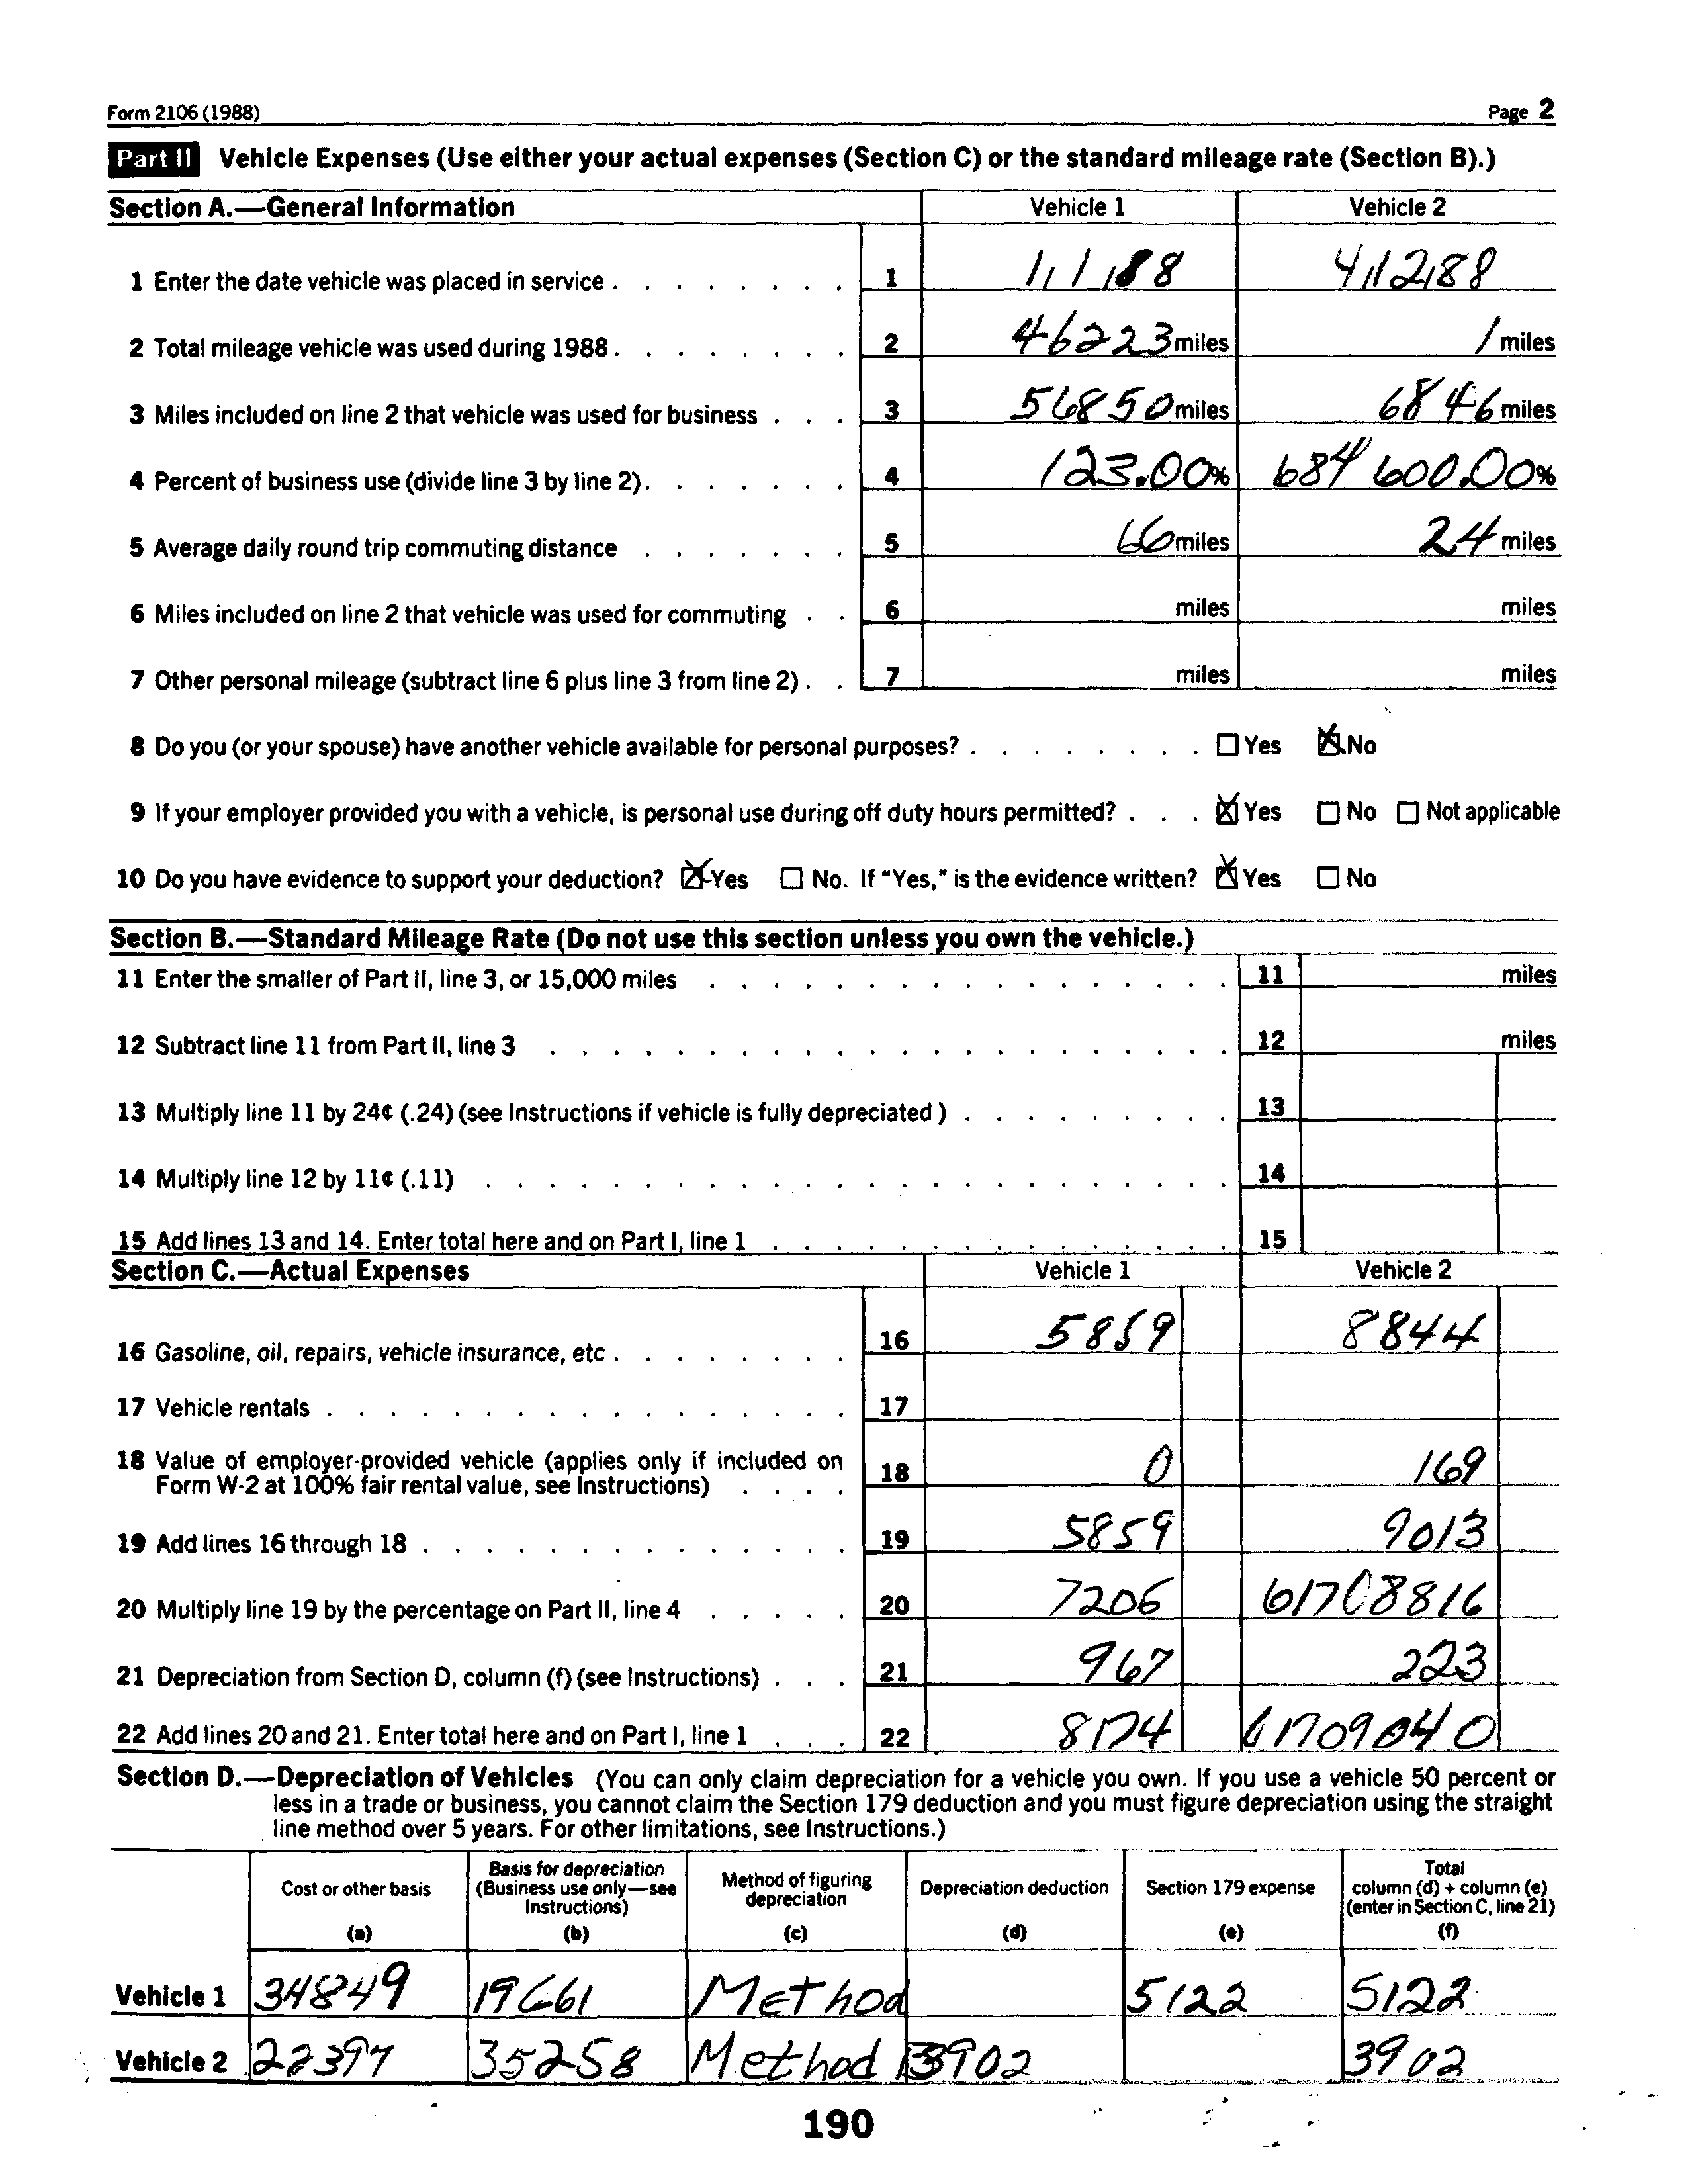 Form 2106 (1988) Page 2
Part II Vehicle Expenses (Use either your actual expenses (Section C) or the standard mileage rate (Section B).)
Section A.—General Information Vehicle 1 Vehicle 2
1 Enter the date vehicle was placed in service 1 1/1/88 4/12/88
2 Total mileage vehicle was used during 1988 2 46223 miles 1 miles
3 Miles included on line 2 that vehicle was used for business 3 56850 miles 6846 miles
4 Percent of business use (divide line 3 by line 2) 4 123.00% 684600.00%
5 Average daily round trip commuting distance 5 66 miles 24 miles
6 Miles included on line 2 that vehicle was used for commuting 6 miles miles
7 Other personal mileage (subtract line 6 plus line 3 from line 2) 7 miles miles
8 Do you (or your spouse) have another vehicle available for personal purposes? ☐ Yes ☒ No
9 If your employer provided you with a vehicle, is personal use during off duty hours permitted? ☒ Yes ☐ No ☐ Not applicable
10 Do you have evidence to support your deduction? ☒ Yes ☐ No. If "Yes," is the evidence written? ☒ Yes ☐ No
Section B.—Standard Mileage Rate (Do not use this section unless you own the vehicle.)
11 Enter the smaller of Part II, line 3, or 15,000 miles 11 miles
12 Subtract line 11 from Part II, line 3 12 miles
13 Multiply line 11 by 24¢ (.24) (see Instructions if vehicle is fully depreciated) 13
14 Multiply line 12 by 11¢ (.11) 14
15 Add lines 13 and 14. Enter total here and on Part I, line 1 15
Section C.—Actual Expenses Vehicle 1 Vehicle 2
16 Gasoline, oil, repairs, vehicle insurance, etc 16 5859 8844
17 Vehicle rentals 17
18 Value of employer-provided vehicle (applies only if included on
Form W-2 at 100% fair rental value, see Instructions) 18 0 169
19 Add lines 16 through 18 19 5859 9013
20 Multiply line 19 by the percentage on Part II, line 4 20 7206 61708816
21 Depreciation from Section D, column (f) (see Instructions) 21 967 223
22 Add lines 20 and 21. Enter total here and on Part I, line 1 22 8174 61709040
Section D.—Depreciation of Vehicles (You can only claim depreciation for a vehicle you own. If you use a vehicle 50 percent or
less in a trade or business, you cannot claim the Section 179 deduction and you must figure depreciation using the straight
line method over 5 years. For other limitations, see Instructions.)
Cost or other basis
(a)
Basis for depreciation
(Business use only—see
Instructions)
(b)
Method of figuring
depreciation
(c)
Depreciation deduction
(d)
Section 179 expense
(e)
Total
column (d) + column (e)
(enter in Section C, line 21)
(f)
Vehicle 1 34849 19661 Method 5122 5122
Vehicle 2 22397 35258 Method 3902 3902
190